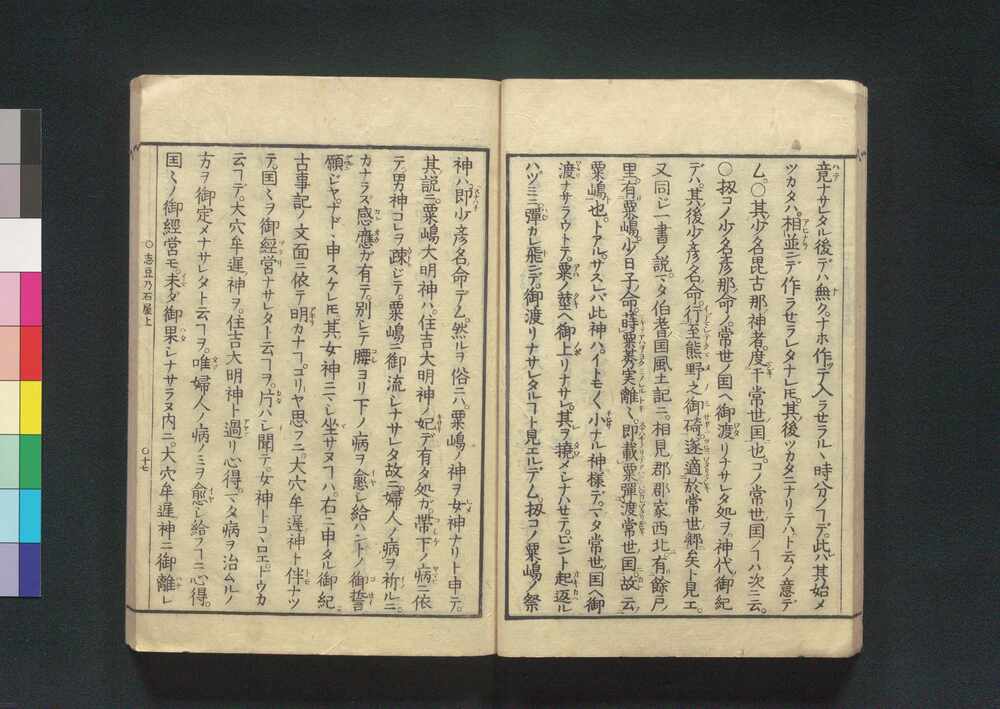 竟ナサレタル後デハ無ク。ナホ作ッテ入ラセラル丶時分ノヿデ。此ハ其始メ
ツカタハ。相並ンデ作ラセラレタナレドモ。其後ツカタニナリテハト云ノ意デ
厶。〇其少名毘古那神者。度于常世国也。コノ常世国ノヿハ次ニ云。
〇扨コノ少名彦那命ノ。常世ノ国ヘ御渡リナサレタ処ヲ。神代御紀
デハ。其後少彦名命。行至熊野之御碕。遂適於常世郷矣ト見エ。
又同ジ一書ノ説。マタ伯耆国風土記ニ。相見郡郡家西北。有餘戸ノ
里。有粟嶋。少日子命。蒔粟莠実離〻。即載粟彈渡常世国。故ニ云フ
粟嶋也。トアル。サスレバ此神ハ。イトモ〳〵小ナル神様デ。マタ常世国ヘ御
渡ナサラウトテ。粟ノ莖ヘ御上リナサレ。其ヲ撓メシナハセテ。ピント起返ル
ハヅミニ彈カレ飛ンデ。御渡リナサレタルヿト見エルデ厶。扨コノ粟嶋ノ祭
神ハ。即少彦名命デ厶。然ルヲ俗ニハ。粟嶋ノ神ヲ女神ナリト申テ。
其説ニ。粟嶋大明神ハ。住吉大明神ノ妃デ有タ処ガ。帶下ノ病ニ依
テ。男神コレヲ疎ジテ。粟嶋ニ御流シナサレタ故ニ。婦人ノ病ヲ祈ルニ。
カナラズ感應ガ有テ。別シテ腰ヨリ下ノ病ヲ愈シ給ハントノ御誓
願ジヤ。ナド丶申スケレドモ。其女神ニマシ坐サヌヿハ。右ニ申タル御紀
古事記ノ文面ニ依テ明カナヿ。コリヤ思フニ。大穴牟遅神ト伴ナツ
テ。国〻ヲ御經営ナサレタト云ヿヲ。片ハシ聞テ。女神トコ丶ロエ。ドウカ
云ヿデ。大穴牟遅神ヲ。住吉大明神ト過リ心得。マタ病ヲ治ムルノ
方ヲ御定メナサレタト云ヿヲ。唯婦人ノ病ノミヲ愈シ給フヿニ心得。
国〻ノ御經営モ。未ダ御果シナサラヌ内ニ。大穴牟遅神ニ御離レ
〇志豆乃石屋上
〇十七